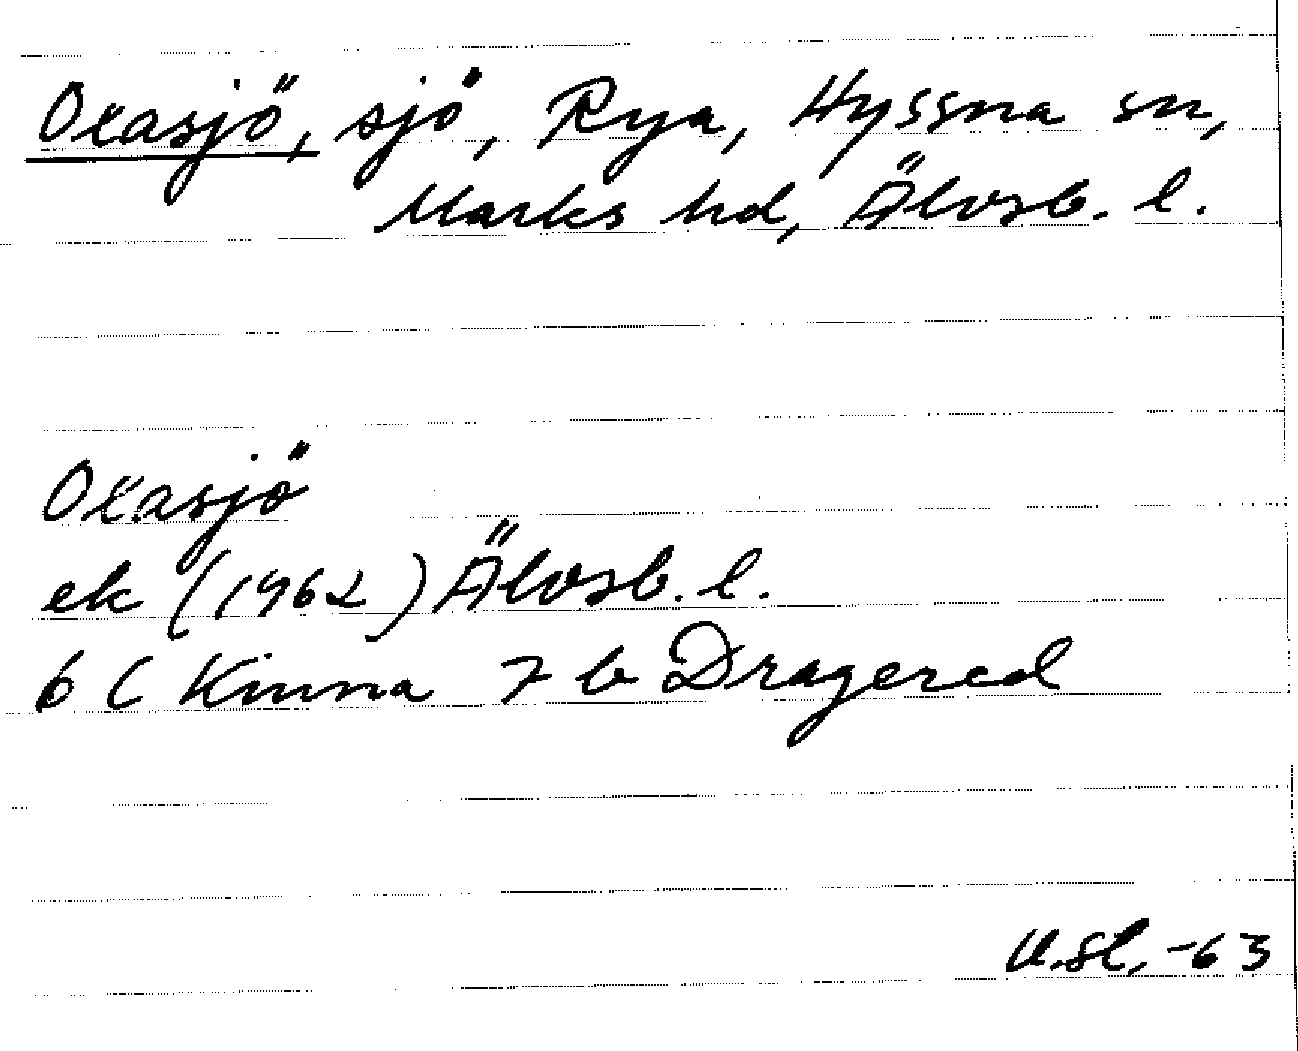 Oxasjö, sjö, Rya, Hyssna sn,
Marks hd, Älvsb. l.
Oxasjö
ek (1962) Älvsb. l.
6 C Kinna 7 b Dragered
U.Sl. -63